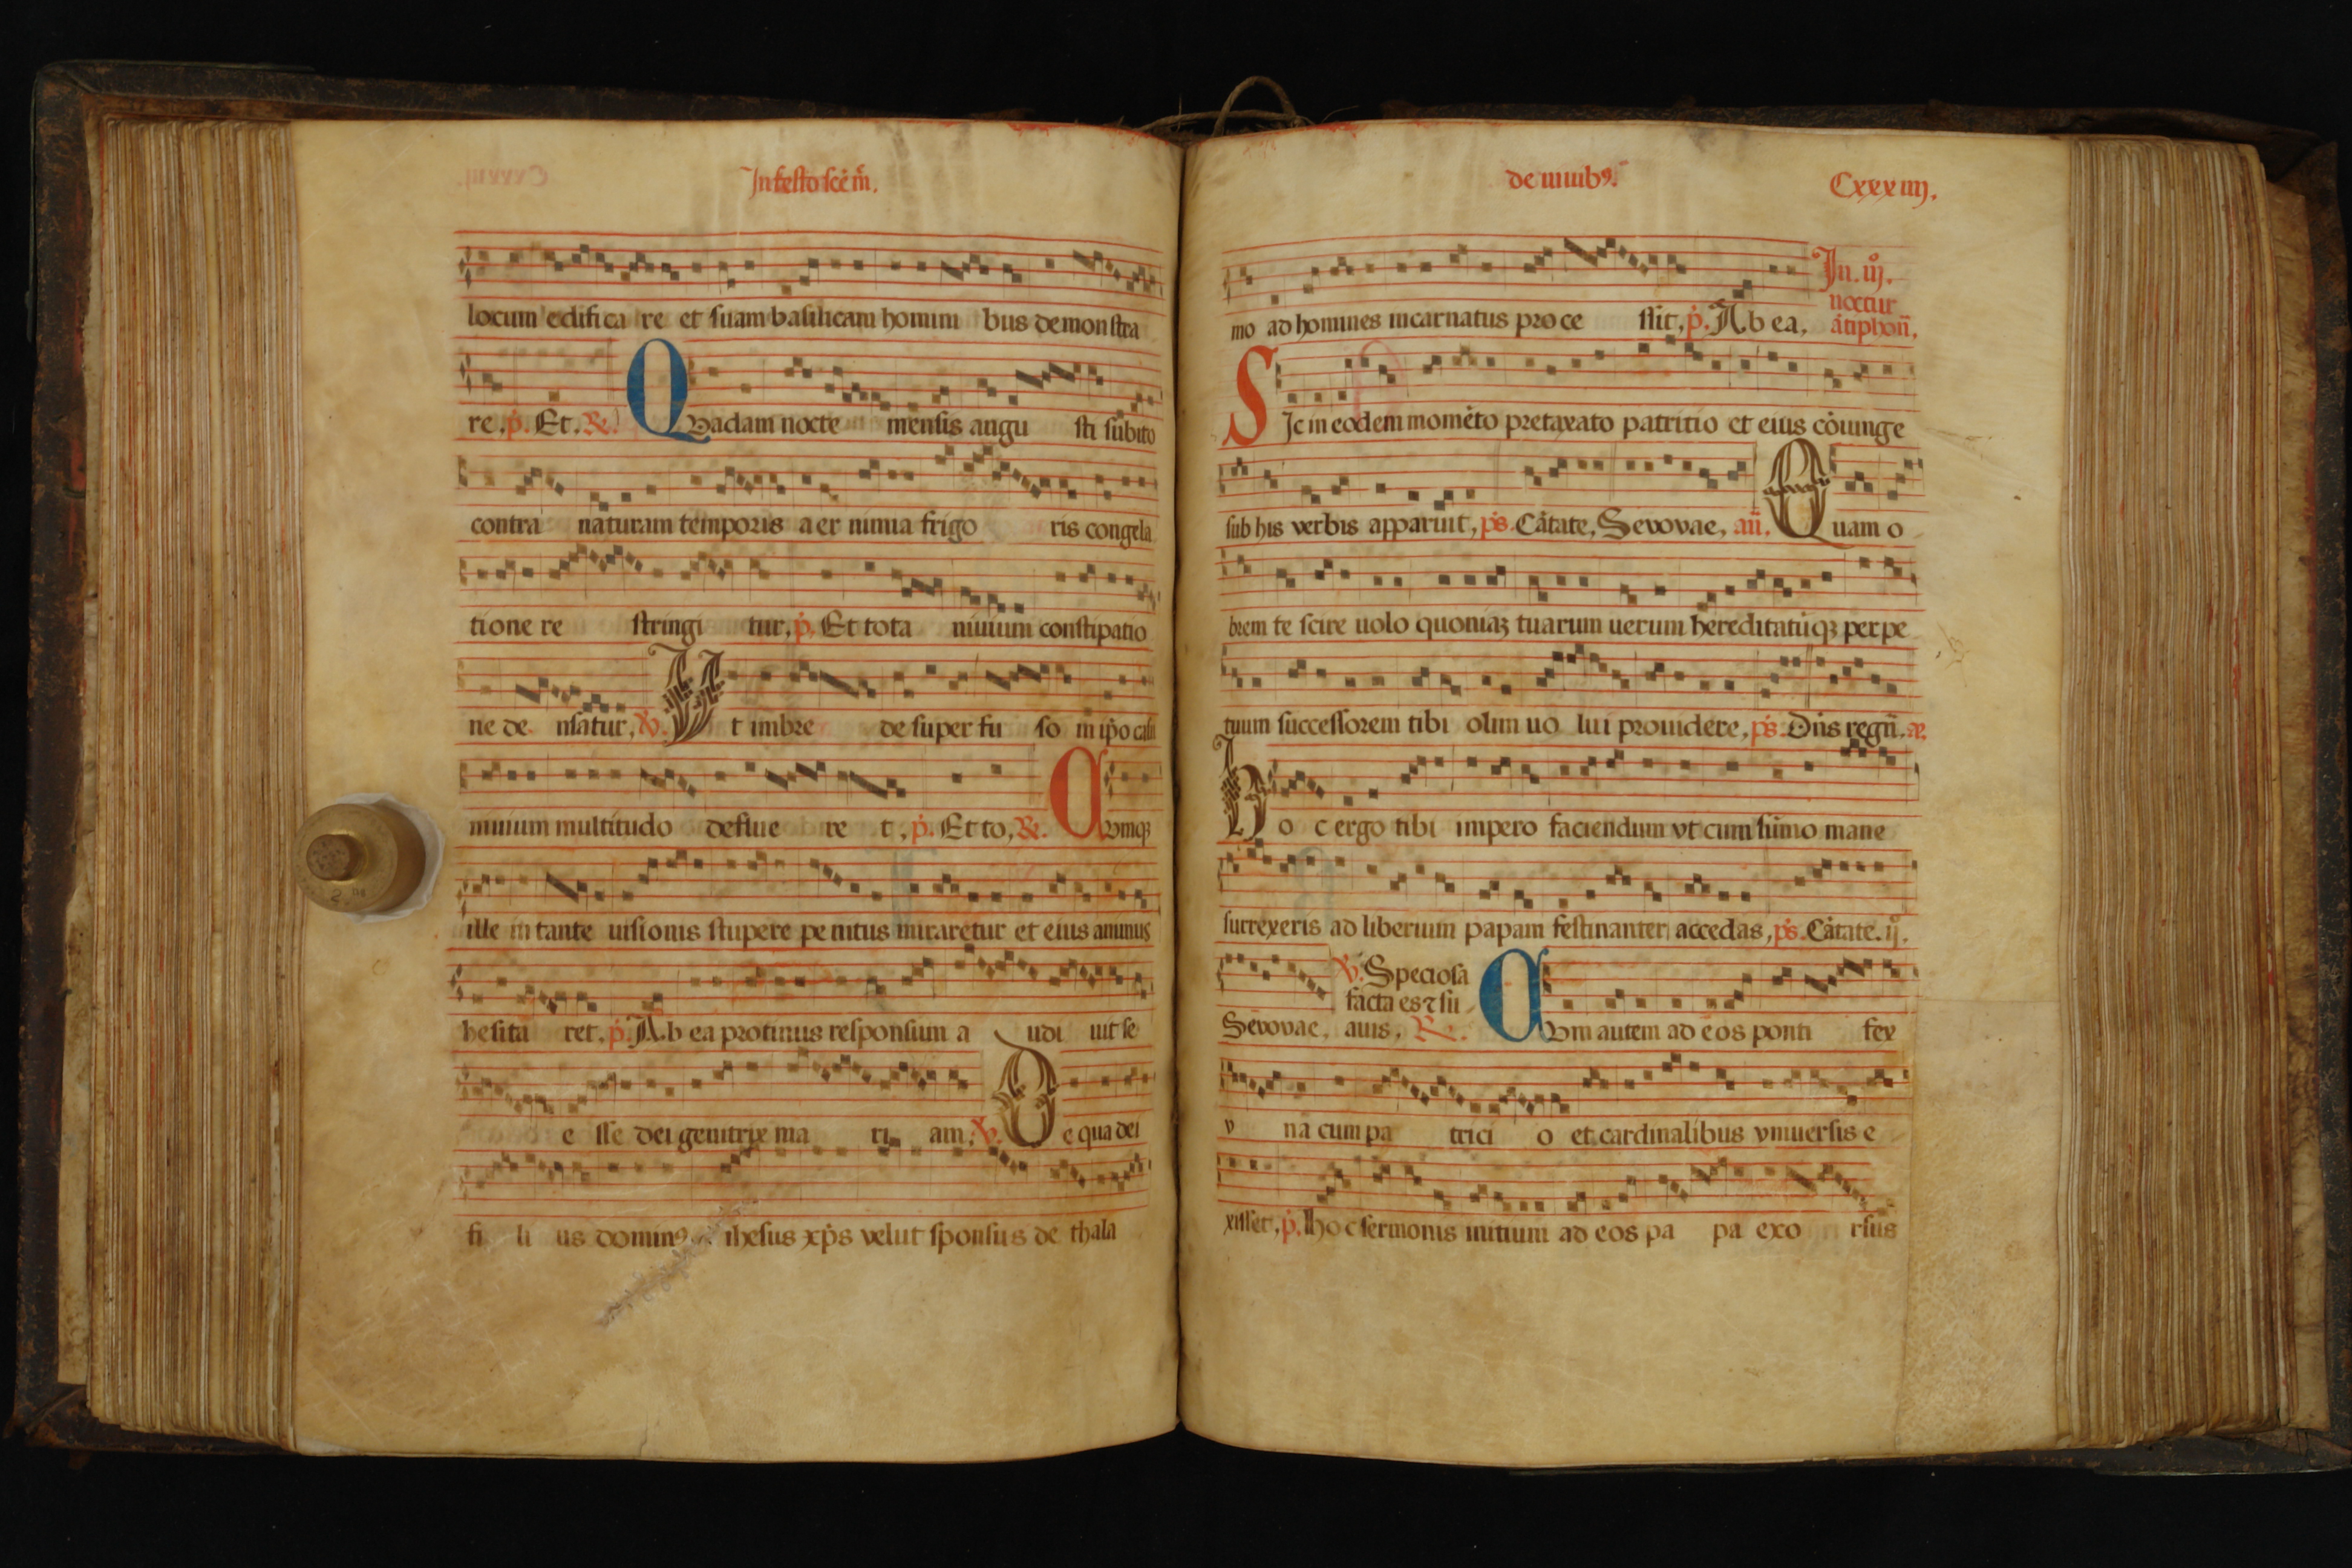 In festo scē m̄.
locum edifica re et suam basilicam homini bus demonstra
re, p̄. Et, ℟.
Quadam nocte mensis augu sti subito
contra naturam temporis aer nimia frigo ris congela
tione re stringi tur, p̄. Et tota niuium constipatio
ne de nsatur, ℣. Ut imbre de super fu so in ip̄o
niuium multitudo deflue re t, p̄. Et to, ℟. Cumqȝ
ille in tante uisionis stupere penitus miraretur et eius animus
hesita ret, p̄. Ab ea protinus responsum a udi uit se
e sse dei genitrix ma ri am, ℣. De qua dei
fi li us dominꝰ ihesus xp̄s velut sponsus de thala
de niuibꝰ.
Cxxxiiij.
mo ad homines incarnatus proce ssit, p̄. Ab ea,
In. iij.
noctur
ātiphon̄.
Sic in eodem momēto pretaxato patritio et eius cōiunge
sub his verbis apparuit, p̄s. Cātate, Sevovae, an̄. Quam o
brem te scire uolo quoniaȝ tuarum uerum hereditatūqȝ perpe
tuum successorem tibi olim uo lui prouidere, p̄s. Dn̄s regn̄.
Ho c ergo tibi impero faciendum vt cum sūmo mane
surrexeris ad liberium papam festinanter accedas, p̄s. Cātate. ij.
℣. Speciosā
facta es ⁊ sū
Sevovae, auis, ℟. Cum autem ad eos ponti fex
v na cum pa trici o et cardinalibus vniuersis e
xisset, p̄. hoc sermonis initium ad eos pa pa exo rsus